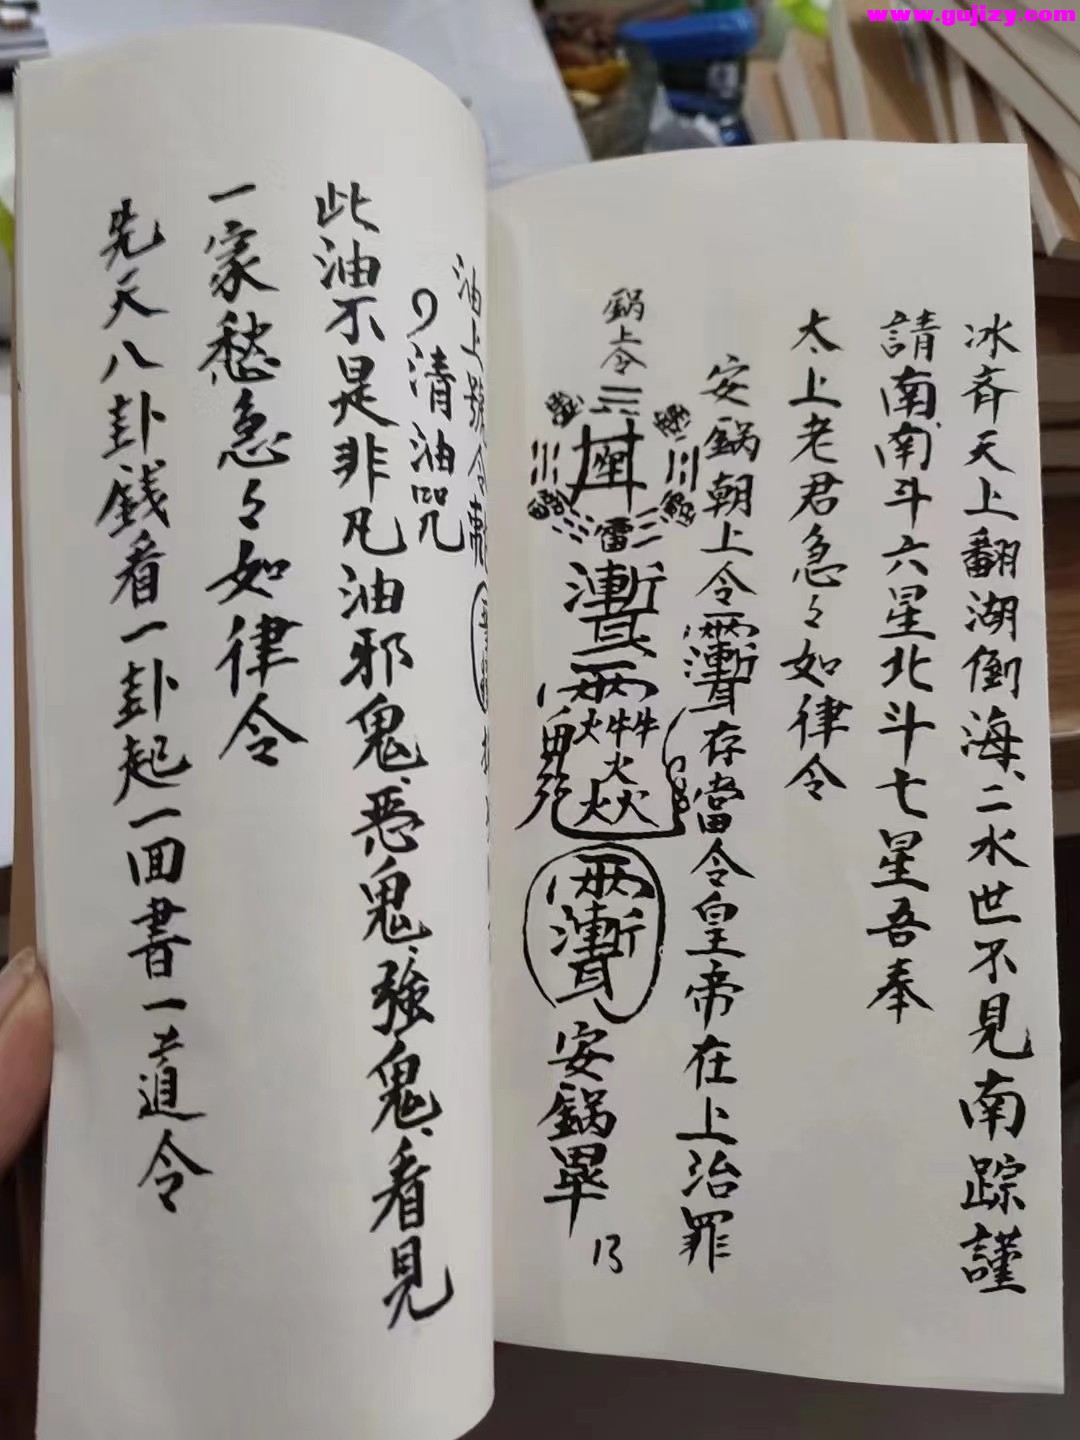 www.gujizy.com
冰斉天上翻湖倒海、二水世不見南踪謹
請南南斗六星北斗七星吾奉
太上老君急々如律令
安鍋朝上令存當令皇帝在上治罪
鍋上令
雷
安鍋畢
油上號令
清油咒
此油不是非凡油邪鬼、惡鬼、強鬼、看見
一家愁急々如律令
先天八卦錢看一卦起一回書一道令